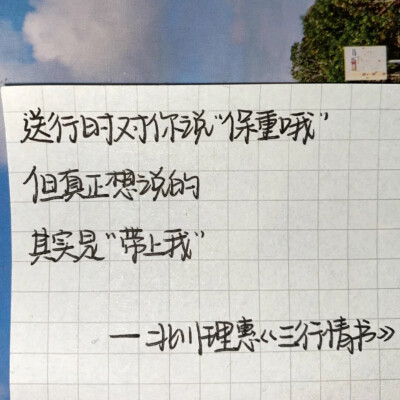 送行时对你说“保重哦”
但真正想说的
其实是“带上我”
—北川理惠《三行情书》